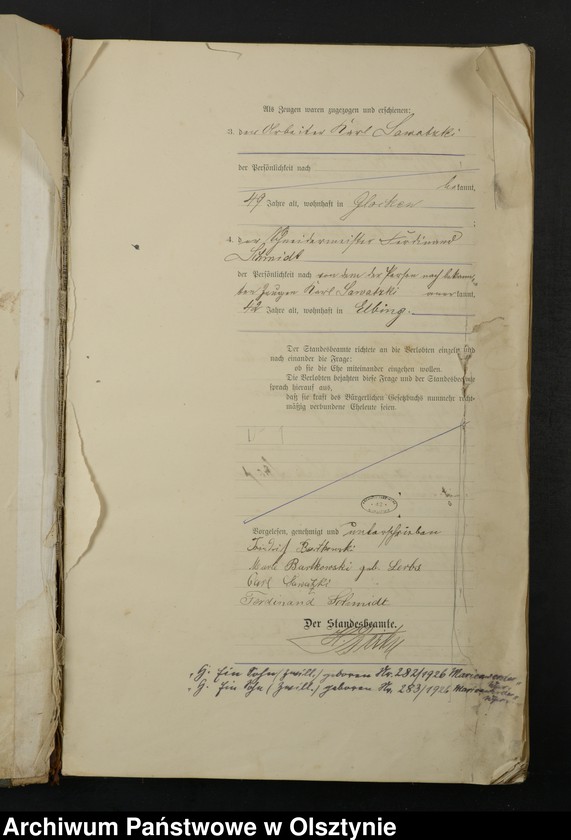 Als Zeugen waren zugezogen und erschienen:
3. der Arbeiter Karl Sawatzki
der Persönlichkeit nach
bekannt,
49 Jahre alt, wohnhaft in
4. der Schneidermeister Ferdinand
Schmidt
der Persönlichkeit nach von dem der Person nach bekann-
ten Zeugen Karl Sawatzki anerkannt,
42 Jahre alt, wohnhaft in Elbing.
Der Standesbeamte richtete an die Verlobten einzeln und
nach einander die Frage:
ob sie die Ehe miteinander eingehen wollen.
Die Verlobten bejahten diese Frage und der Standesbeamte
sprach hierauf aus,
daß sie kraft des Bürgerlichen Gesetzbuchs nunmehr recht-
mäßig verbundene Eheleute seien.
Vorgelesen, genehmigt und unterschrieben
Bartkowski
Marie Bartkowski geb.
Carl Sawatzki
Ferdinand Schmidt
Der Standesbeamte.
Ein Sohn (Zwill.) geboren Nr. 282/1926
Ein Sohn (Zwill.) geboren Nr. 283/1926
Archiwum Państwowe w Olsztynie